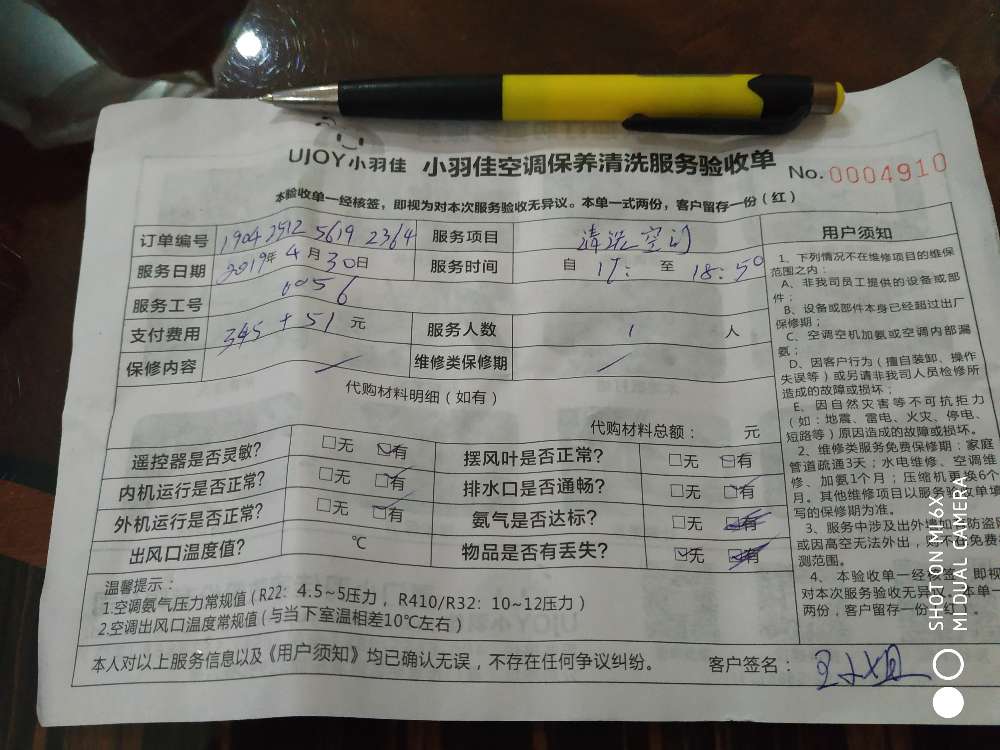 UJOY小羽佳 小羽佳空调保养清洗服务验收单 No.0004910
本验收单一经核签，即视为对本次服务验收无异议。本单一式两份，客户留存一份（红）
订单编号 1904 2912 5619 2364 服务项目 清洗空调
服务日期 2019年4月30日 服务时间 自 17: 至 18:50
服务工号 0056
支付费用 345+51 元 服务人数 1 人
保修内容 / 维修类保修期 /
代购材料明细（如有）
代购材料总额： 元
遥控器是否灵敏？ □无 ☑有 摆风叶是否正常？ □无 ☑有
内机运行是否正常？ □无 ☑有 排水口是否通畅？ □无 ☑有
外机运行是否正常？ □无 ☑有 氨气是否达标？ □无 ☑有
出风口温度值？ ℃ 物品是否有丢失？ ☑无 ☑有
温馨提示：
1.空调氨气压力常规值（R22：4.5~5压力，R410/R32：10~12压力）
2.空调出风口温度常规值（与当下室温相差10℃左右）
本人对以上服务信息以及《用户须知》均已确认无误，不存在任何争议纠纷。 客户签名：
用户须知
1、下列情况不在维修项目的维保
范围之内：
A、非我司员工提供的设备或部
件；
B、设备或部件本身已经超过出厂
保修期；
C、空调空机加氨或空调内部漏
氨；
D、因客户行为（擅自装卸、操作
失误等）或另请非我司人员检修所
造成的故障或损坏；
E、因自然灾害等不可抗拒力
（如：地震、雷电、火灾、停电、
短路等）原因造成的故障或损坏。
2、维修类服务免费保修期：家庭
管道疏通3天；水电维修、空调维
修、加氨1个月；压缩机更换6个
月。其他维修项目以服务验收单填
写的保修期为准。
3、服务中涉及出外墙加 防盗
或因高空无法外出， 不在免费
测范围。
4、本验收单一经核签，即视
对本次服务验收无异议。本单一
两份，客户留存一份（红）。
SHOT ON MI 6X
MI DUAL CAMERA